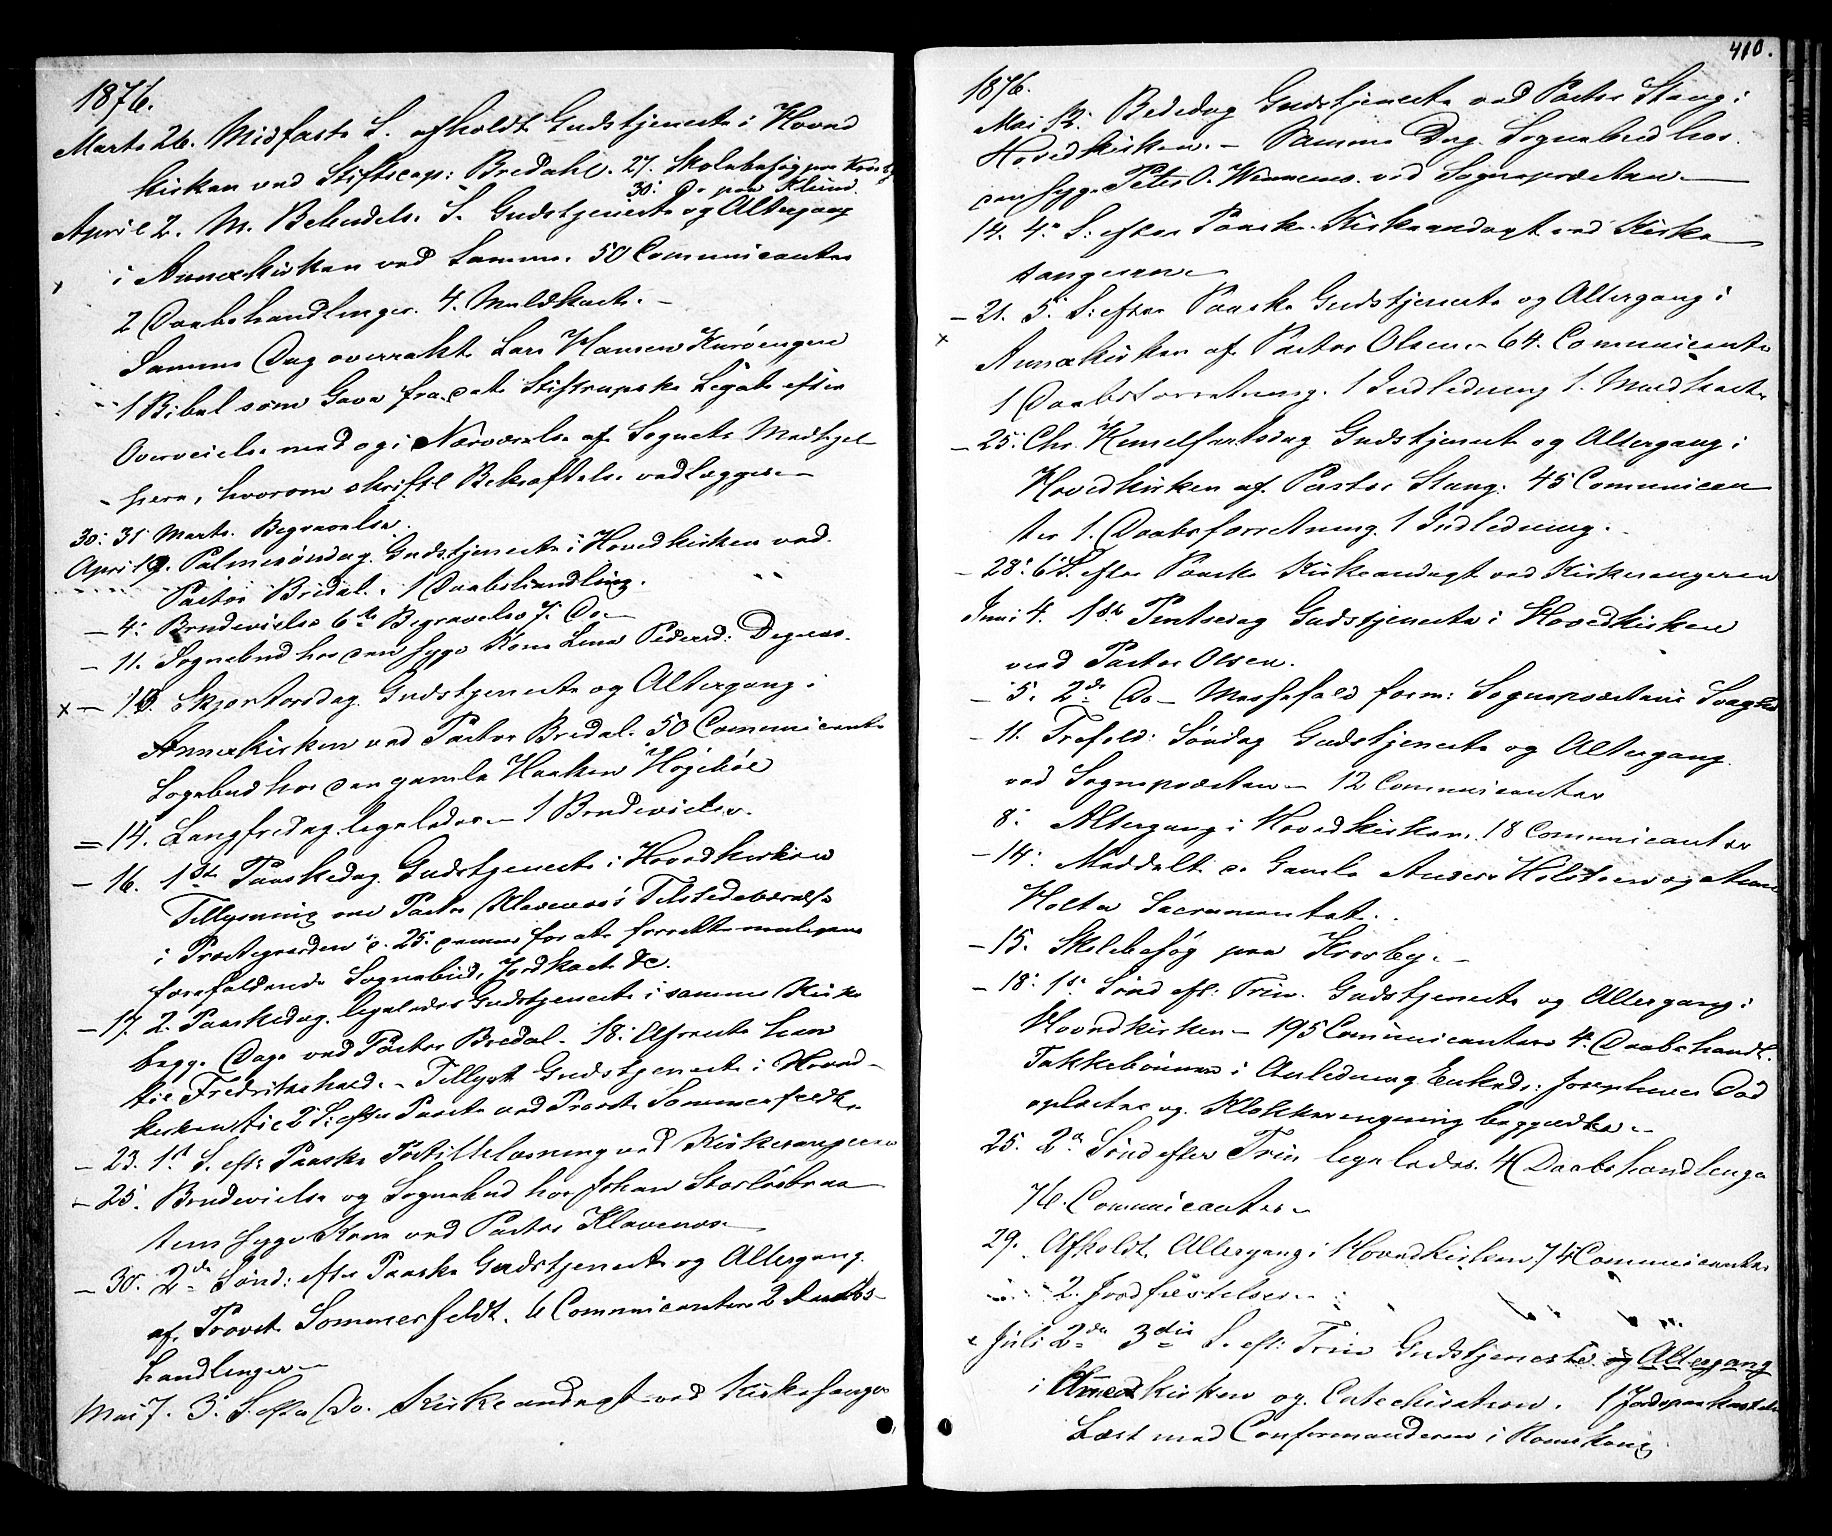 1876.
Marts 26. Midfaste S. afholdt Gudstjeneste i Hoved
kirken ved Stiftscap: Bredahl. 27. Skolebesøg paa Krosby
30. Do paa Klund.
April 2. M. Bebudels. S. Gudstjeneste og Altergang
i Annexkirken ved Samme. 50 Communicanter
2 Daabshandlinger. 4. Muldkast. –
Samme Dag overrakt Lars Hansen Kurøengen
1 Bibel som Gave fra det Legat efter
Overveielse med og i Nærværelse af Sognets Medhjel
pere, hvorom skriftl Bekræftelse vedlægges. –
30: 31 Marts. Begravelse.
April 9. Palmesøndag. Gudstjeneste i Hovedkirken ved
Pastor Bredal. 1 Daabshandling.
– 4. Brudevielse 6te Begravelse 7. Do –
– 11. Sognebud hos den syge Kone Lena Pedersd:
x – 13. Skjærtorsdag. Gudstjeneste og Altergang i
Annexkirken ved Pastor Bredal. 50 Communicanter
Sognebud hos den gamle Haaken Højebøl
= 14. Langfredag. ligeledes. – 1 Brudevielse.
– 16. 1ste Paaskedag. Gudstjeneste i Hovedkirken
Tillysning om Pastor Klavenes's Tilstedeværelse
i Præstegaarden d. 25. dennes for at forrette muligens
forefaldende Sognebud, Jordkast &c.
– 17. 2. Paaskedag. ligeledes Gudstjeneste i samme Kirke
begge Dage ved Pastor Bredal. 18. Afreiste han
til Fredrikshald. – Tillyst Gudstjeneste i Hoved-
kirken til 2 S: efter Paaske ved Provst Sommerfeldt.
– 23. 1st S. eft: Paaske Postillelæsning ved Kirkesangeren
– 25. Brudevielse og Sognebud hos Johan Storløsbraa
tens syge Kone ved Pastor Klavenes. –
– 30. 2den Sønd: efter Paaske Gudstjeneste og Altergang
af Provst Sommerfeldt. 6 Communicanter 2 Daabs-
handlinger –
Mai 7. 3. S. efter Do. Kirkeandagt ved Kirkesanger
410.
1876.
Mai 12. Bededag Gudstjeneste ved Pastor Stang i
Hovedkirken. – Samme Dag. Sognebud hos
den syge Peter O. ved Sognepræsten –
14. 4de S: efter Paaske Kirkeandagt ved Kirke
sangeren
– 21. 5. S: efter Paaske Gudstjeneste og Altergang i
x
Annexkirken af Pastor Olsen. – 64. Communicanter
1 Daabsforretning. 1 Indledning 1. Muldkaste
– 25. Chr. Himelfartsdag Gudstjenest og Altergang i
Hovedkirken af Pastor Stang. 45 Comunican
ter 1. Daabsforretning. 1 Indledning.
– 28. 6 S. efter Paaske Kirkeandagt ved Kirkesangeren
Juni 4. 1ste Pintsedag Gudstjeneste i Hovedkirken
ved Pastor Olsen.
– 5. 2de Do – Messefald form: Sognepræstens Svaghed
– 11. Trefold: Søndag Gudstjeneste og Altergang
ved Sognepræsten – 12 Communicanter
8. Altergang i Hovedkirken. 18 Communicanter
– 14. Meddelt d. Gamle Anders Holsteen og Anne
Holter Sacramentet.
– 15. Skolebesøg paa Krosby. –
– 18. 1ste Sønd eft: Trin. Gudstjeneste og Altergang i
Hovedkirken – 195 Communicanter 4. Daabshandl.
Takkebønnen i Anledning Enkeds: Josephines Død
oplæstes og Klokkeringning begyndte. –
25. 2den Sønd efter Trin ligeledes. 4 Daabshandlinge
76. Communicanter –
29. Afholdt Altergang i Hovedkirken 74 Communicanter
2. Jordfæstelser. –
x Juli 2de 3die S. eft: Trin Gudstjeneste og Altergang
i Annexkirken og Catechisation. 1 Jordpaakastelse
Læst med Confirmanderne i Romskoug